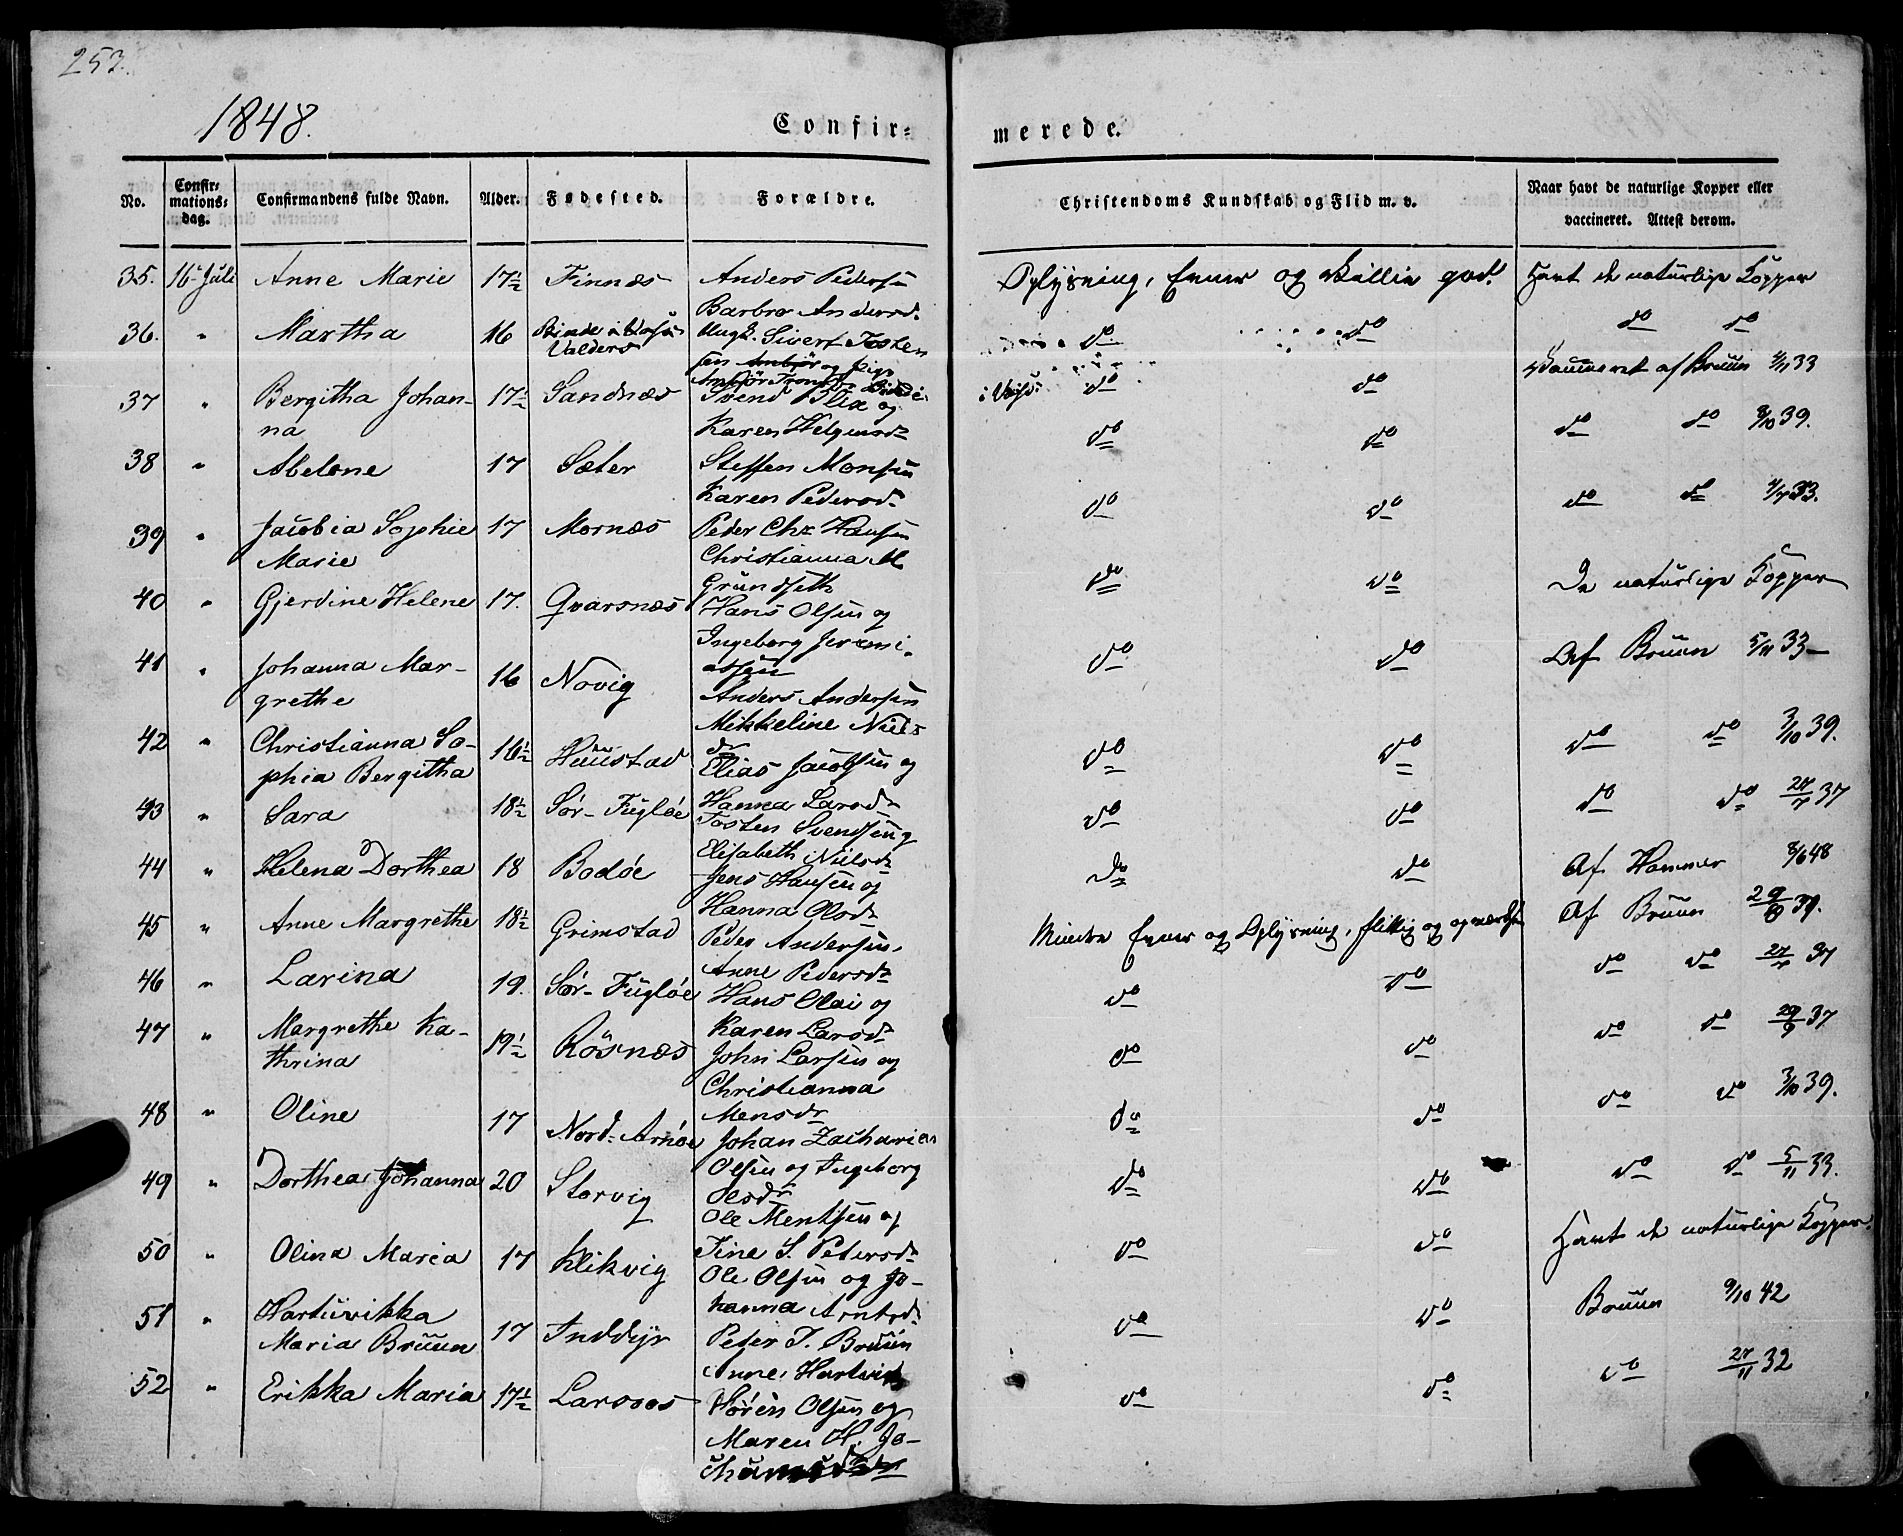 252.
1848.
Confir=
merede.
No.
Confir=
mations=
dag.
Confirmandens fulde Navn.
Alder.
Fødested.
Forældre.
Christendoms Kundskab og Flid m. v.
Naar havt de naturlige Kopper eller
vaccineret. Attest derom.
35. 16 Juli Anne Marie 17½ Finnæs Anders Pedersen
Barbro Andersd.
Oplysning, Evner og Villie god. Havt de naturlige Kopper
36. " Martha 16
Valders
Ungk. Sivert Tosten
sen og Pige
do do do do
37 " Bergitha Johan-
na
17½ Sandnæs Svend Blix og
Karen Helgensdr
do do Vaccineret af Bruun 4/11 33
38 " Abelone 17 Sæter Steffen Monsen
Karen Pedersd.
do do do do 3/10 39.
39 " Jacobia Sophie
Marie
17 Mornæs Peder Chr Hansen
Christianna M
Grundseth
do do do do 33.
40 " Gjerdine Helene 17. Qvarsnæs Hans Olsen og
Ingeborg Jeremi-
assen
do do De naturlige Kopper
41 " Johanna Mar-
grethe
16 Novig Anders Andersen
Mikkeline Niels
dr
do do Af Bruun 5/11 33
42 " Christianna So-
phia Bergitha
16½ Huustad Elias Jacobsen og
Hanna Larsdr
do do do do 3/10 39.
43 " Sara 18½ Sør-Fugløe Tosten Svendsen og
Elisabeth Nielsdr
do do do do 27/7 37
44 " Helena Dorthea 18 Bodøe Jens Hansen og
Hanna Olsdr
do do Af Hammer 8/6 48
45 " Anne Margrethe 18½ Grimstad Peder Andersen,
Anne Pedersdr
Mindre Evner og Oplysning, flittig og Af Bruun 39.
46 " Larina 19. Sør-Fugløe Hans Olai og
Karen Larsdr
do do do do 27/7 37
47 " Margrethe Ka-
thrina
19½ Røsnæs John Larsen og
Christianna
Mensdr
do do do do 29/9 37
48 " Oline 17 Nord-Arnøe Johan Zacharias
Olsen og Ingeborg
Olsdr
do do do do 3/10 39.
49 " Dorthea Johanna 20 Storvig Ole Mentsen og
Tine S. Petersdr
do do do do 5/11 33.
50 " Olina Maria 17 Klikvig Ole Olsen og Jo-
hanna Arntsd.
do do Havt de naturlige Kopper.
51 " Hartvikka
Maria Bruun
17 Inddyr Peter J. Bruun
Anne Hartvi
do do Bruun 9/10 42
52 " Erikka Maria 17½ Larsoos Søren Olsen og
Maren H. Jo-
do do do 27/11 32